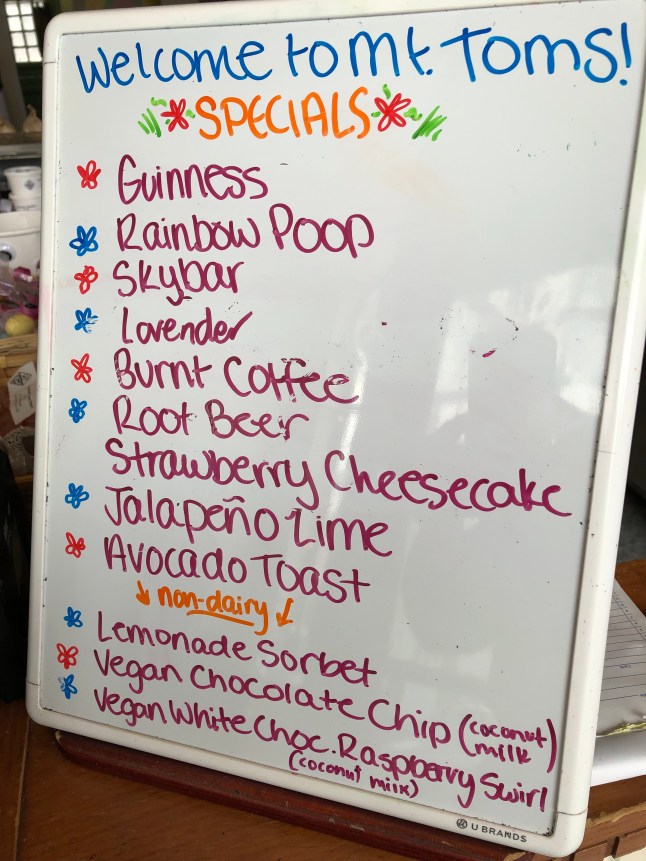 Welcome to Mt. Toms!
SPECIALS
Guinness
Rainbow Poop
Skybar
Lavender
Burnt Coffee
Root Beer
Strawberry Cheesecake
Jalapeño Lime
Avocado Toast
non-dairy
Lemonade Sorbet
Vegan Chocolate Chip (coconut milk)
Vegan White Choc. Raspberry Swirl
(coconut milk)
U BRANDS